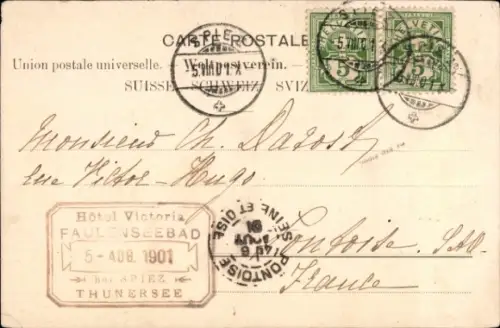 CARTE POSTALE
Union postale universelle. Weltpostverein.
SUISSE SCHWEIZ SVIZ
SPIEZ
5.VIII.01.X
HELVETIA
5
HELVETIA
5
SPIEZ
5.VIII.01.X
SPIEZ
Monsieur Ch. Darost
rue Victor-Hugo
Pontoise. S&O
France
Hôtel Victoria
FAULENSEEBAD
5-AUG.1901
bei SPIEZ
THUNERSEE
PONTOISE
SEINE ET OISE
6
AOUT
01